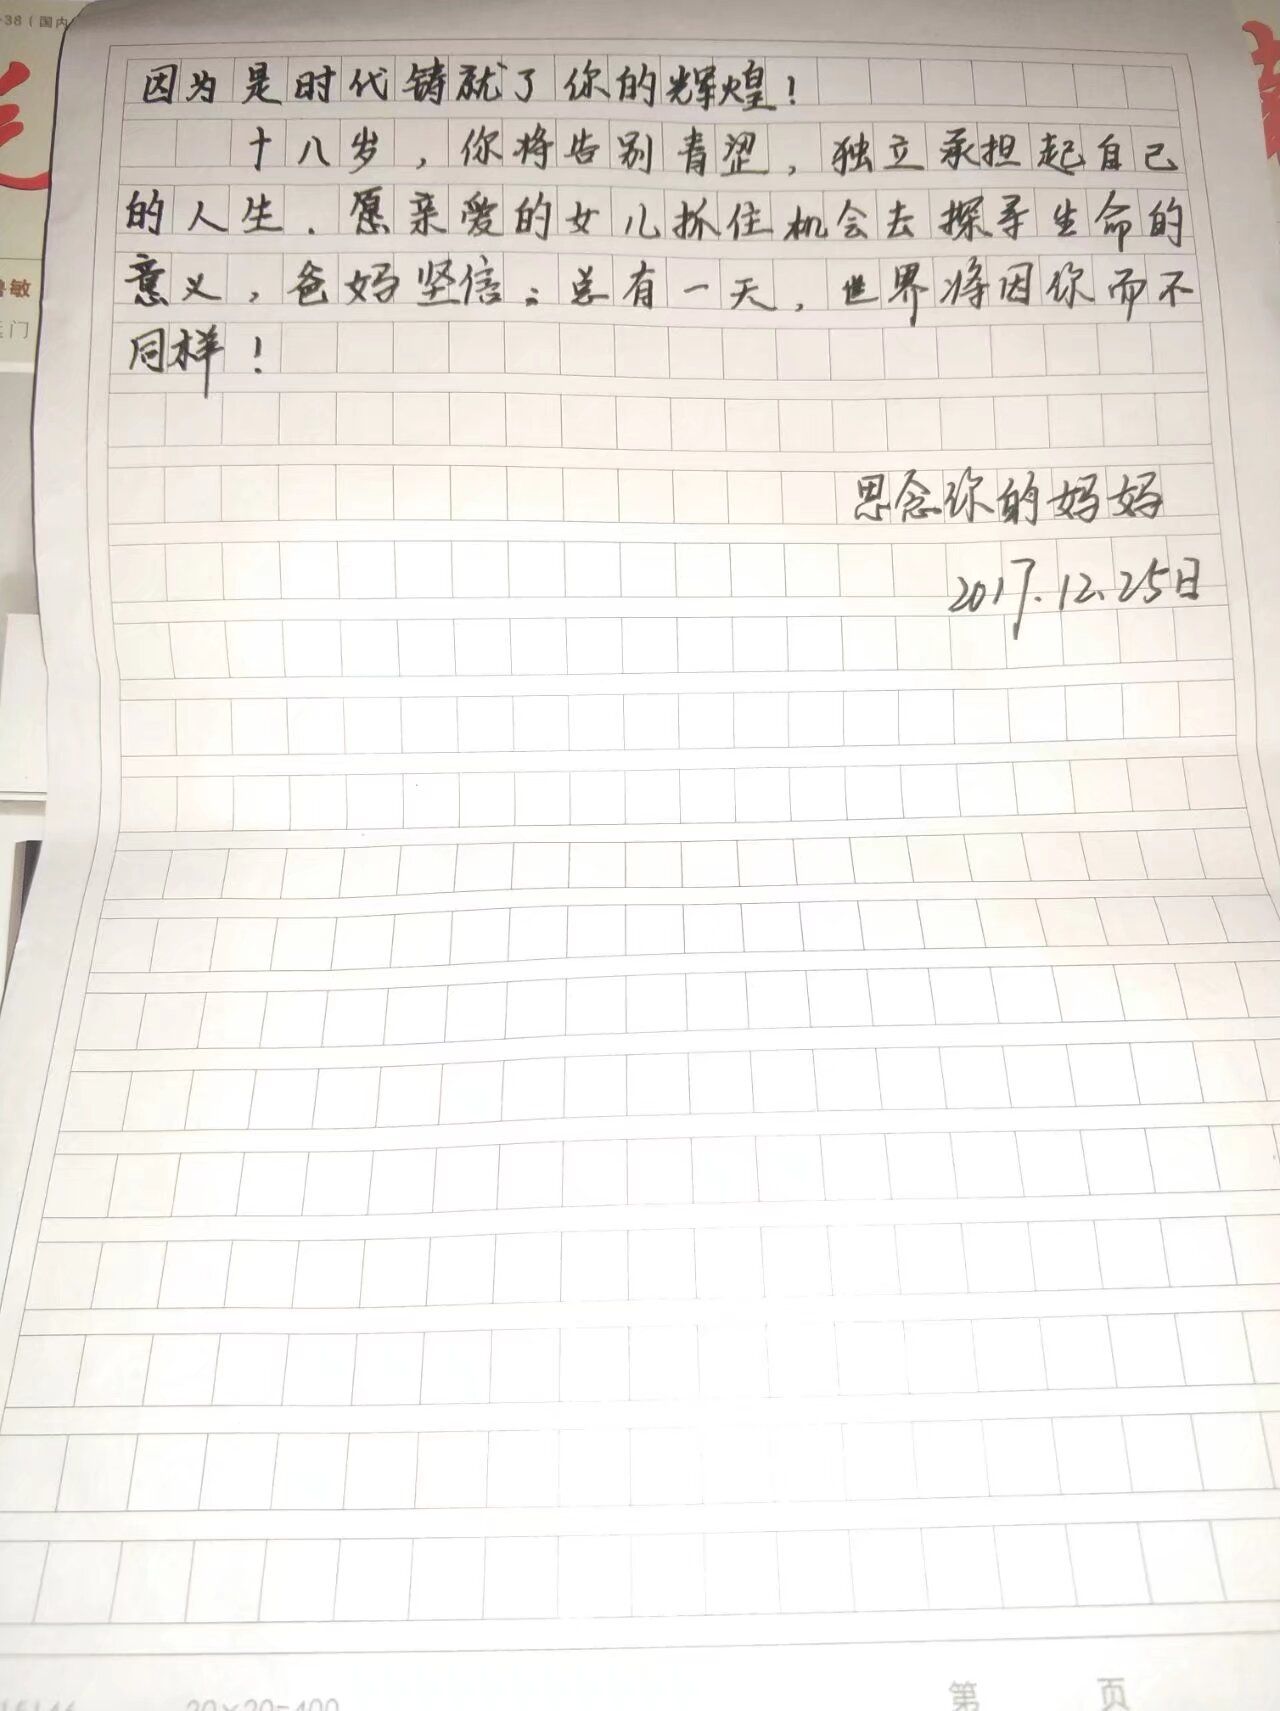 -38（国内
因为是时代铸就了你的辉煌！
十八岁，你将告别青涩，独立承担起自己
的人生．愿亲爱的女儿抓住机会去探寻生命的
意义，爸妈坚信：总有一天，世界将因你而不
同样！
思念你的妈妈
2017.12.25日
20×20=400
第 页